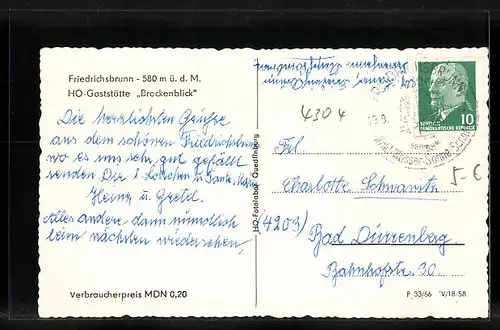 Friedrichsbrunn - 580 m ü. d. M.
HO-Gaststätte „Brockenblick"
Die herzlichsten Grüße
aus dem schönen Friedrichsbrunn
wo es uns sehr gut gefällt
senden Dir l. Lottchen u. Tante
Heinz u. Gretel.
Alles andere dann mündlich
beim nächsten wiedersehen.
Verbraucherpreis MDN 0,20
HO-Fotofabor Quedlinburg
4304
10
DEUTSCHE DEMOKRATISCHE REPUBLIK
580 m ü.M.
Wald-Wasser-Sonne
Frl.
Charlotte Schwanitz
5-€
(4203) Bad Dürrenberg
Bahnhofstr. 30
P 33/66 V/18/58